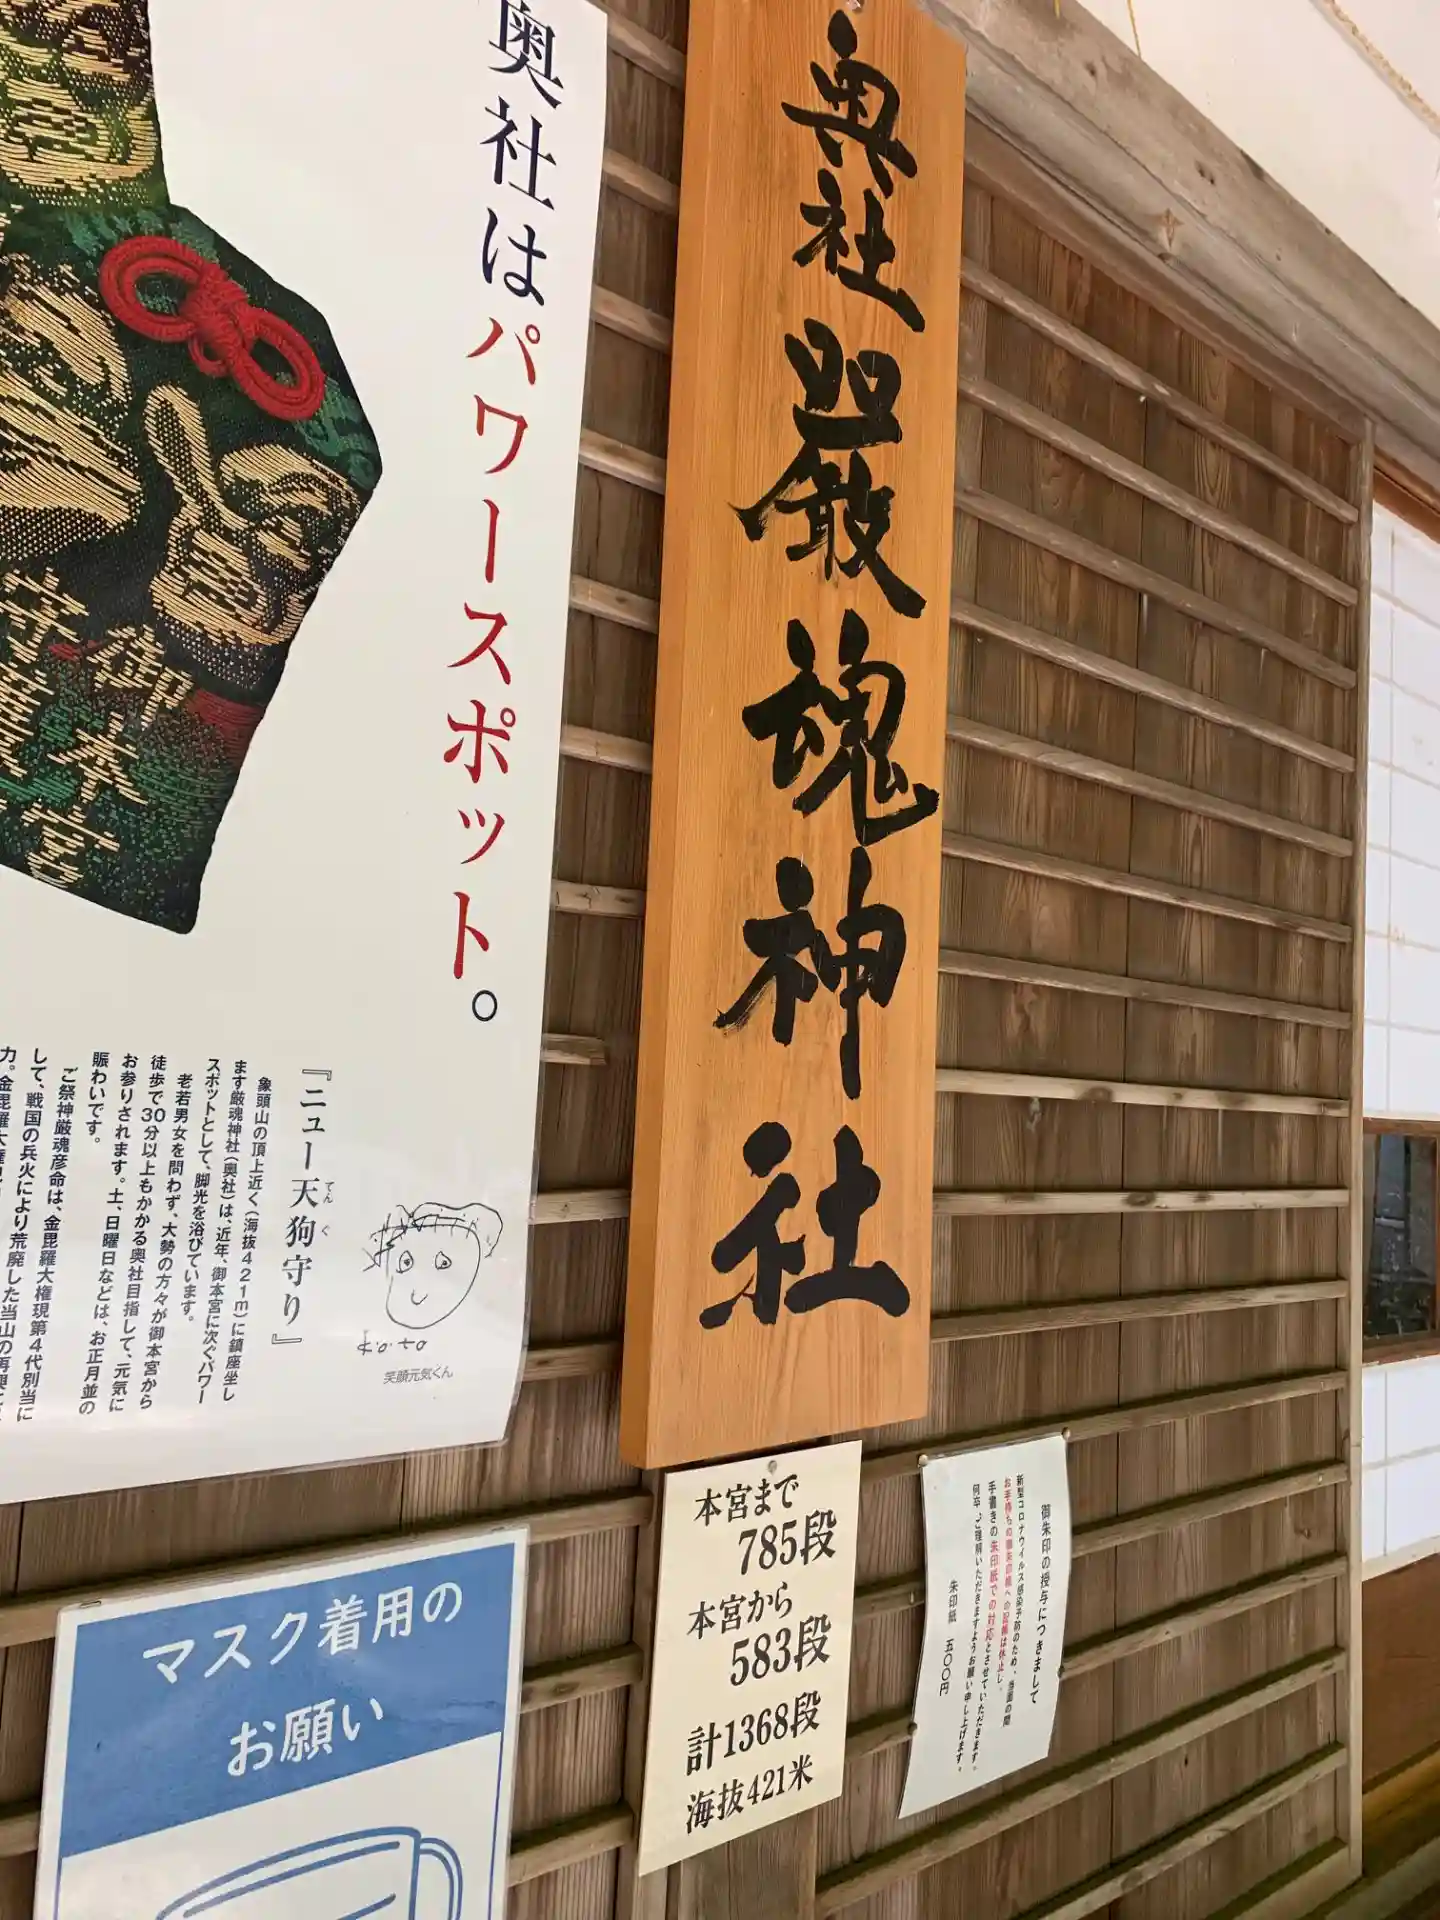 奥社はパワースポット。
『ニュー天狗守り』
てんぐ
象頭山の頂上近く(海抜421m)に鎮座坐し
ます厳魂神社(奥社)は、近年、御本宮に次ぐパワー
スポットとして、脚光を浴びています。
老若男女を問わず、大勢の方々が御本宮から
徒歩で30分以上もかかる奥社目指して、元気に
お参りされます。土、日曜日などは、お正月並の
賑わいです。
ご祭神厳魂彦命は、金毘羅大権現第4代別当に
して、戦国の兵火により荒廃した当山の再興に
力。金毘羅大権現
ko.to
笑顔元気くん
御本宮
奥社
嚴魂神社
本宮まで
785段
本宮から
583段
計1368段
海抜421米
御朱印の授与につきまして
新型コロナウイルス感染予防のため、当面の間
お手持ちの御朱印帳への記帳は休止し、
手書きの朱印紙での対応とさせていただきます。
何卒、ご理解いただきますようお願い申し上げます。
朱印紙 五〇〇円
マスク着用の
お願い